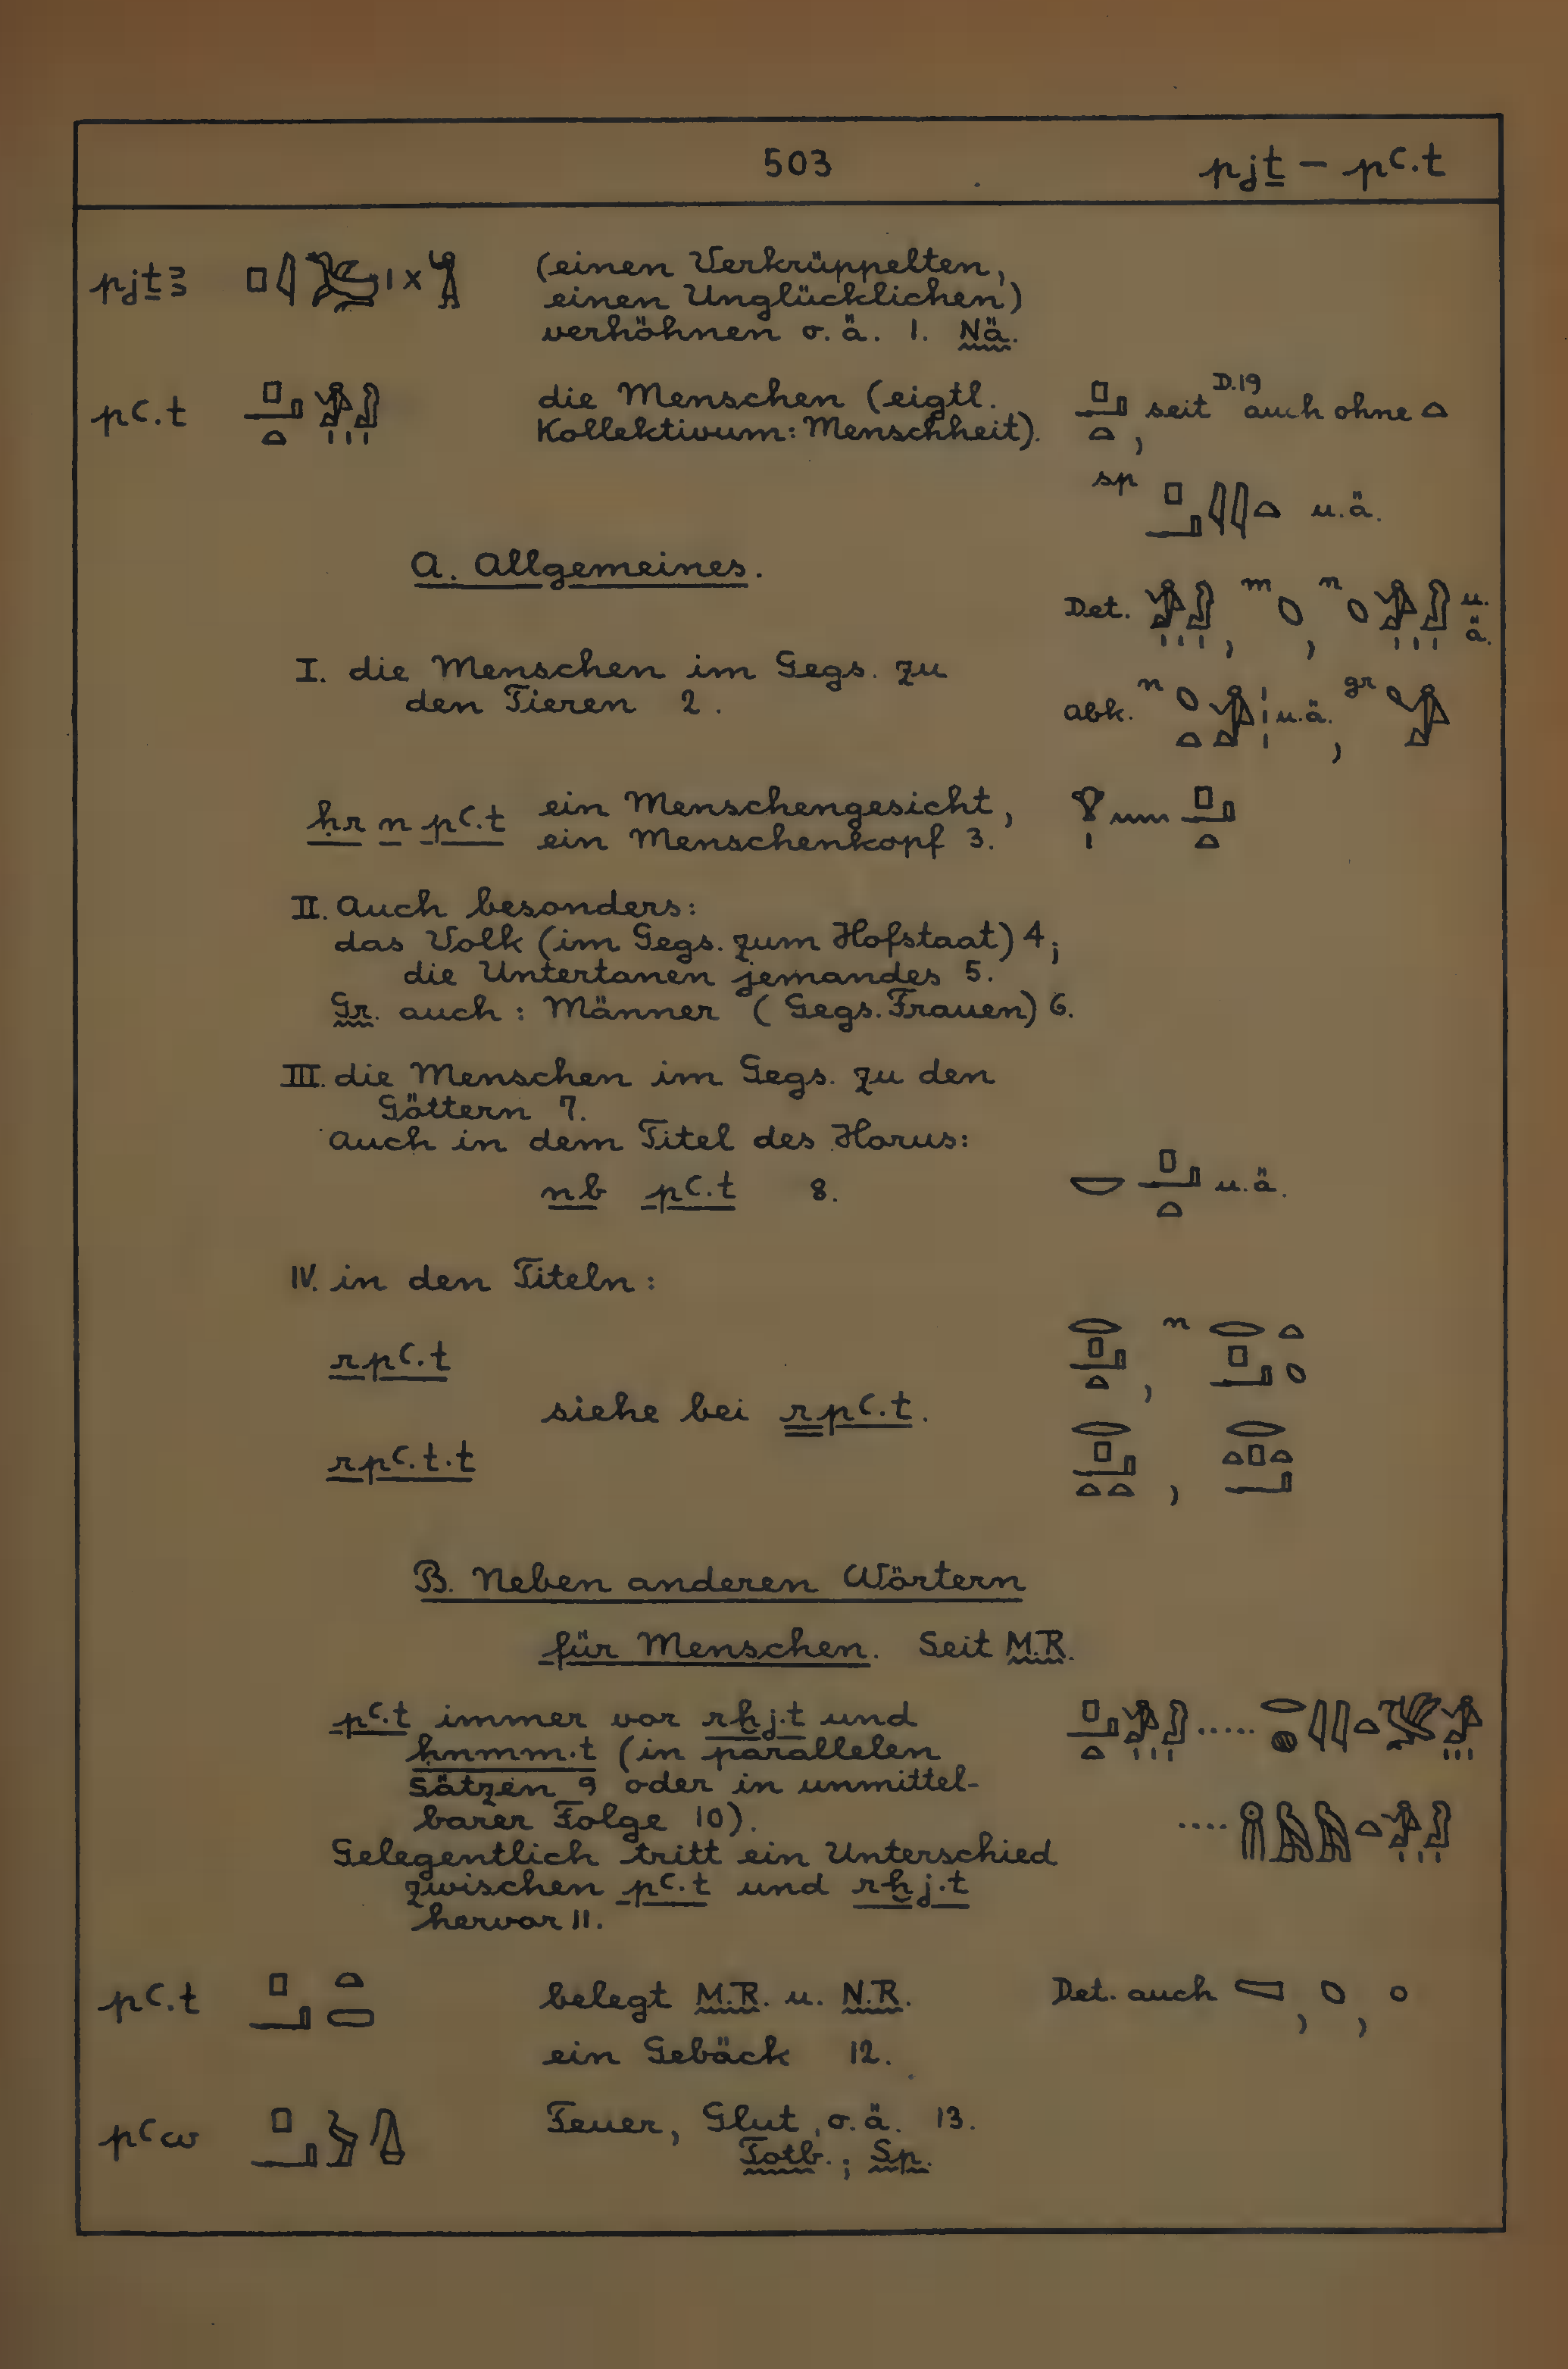 503 pjṯ – pꜥ.t
pjṯꜣ (einen Verkrüppelten,
einen Unglücklichen)
verhöhnen o. ä. 1. Nä.
pꜥ.t die Menschen (eigtl. seit D.19 auch ohne
Kollektivum: Menschheit).
sp u.ä.
A. Allgemeines.
Det. , m , n u. ä.
I. die Menschen im Gegs. zu
den Tieren 2.
Abk. n u.ä., gr
ḥr n pꜥ.t ein Menschengesicht,
ein Menschenkopf 3.
II. Auch besonders:
das Volk (im Gegs. zum Hofstaat) 4;
die Untertanen jemandes 5.
Gr. auch: Männer (Gegs. Frauen) 6.
III. die Menschen im Gegs. zu den
Göttern 7.
Auch in dem Titel des Horus:
nb pꜥ.t 8. u.ä.
IV. in den Titeln:
rpꜥ.t , n
siehe bei rpꜥ.t.
rpꜥ.t.t ,
B. Neben anderen Wörtern
für Menschen. Seit M.R.
pꜥ.t immer vor rḫj.t und .....
ḥnmm.t (in parallelen
Sätzen 9 oder in unmittel-
barer Folge 10). ....
Gelegentlich tritt ein Unterschied
zwischen pꜥ.t und rḫj.t
hervor 11.
pꜥ.t belegt M.R. u. N.R. Det. auch , ,
ein Gebäck 12.
pꜥw Feuer, Glut, o.ä. 13.
Totb.; Sp.